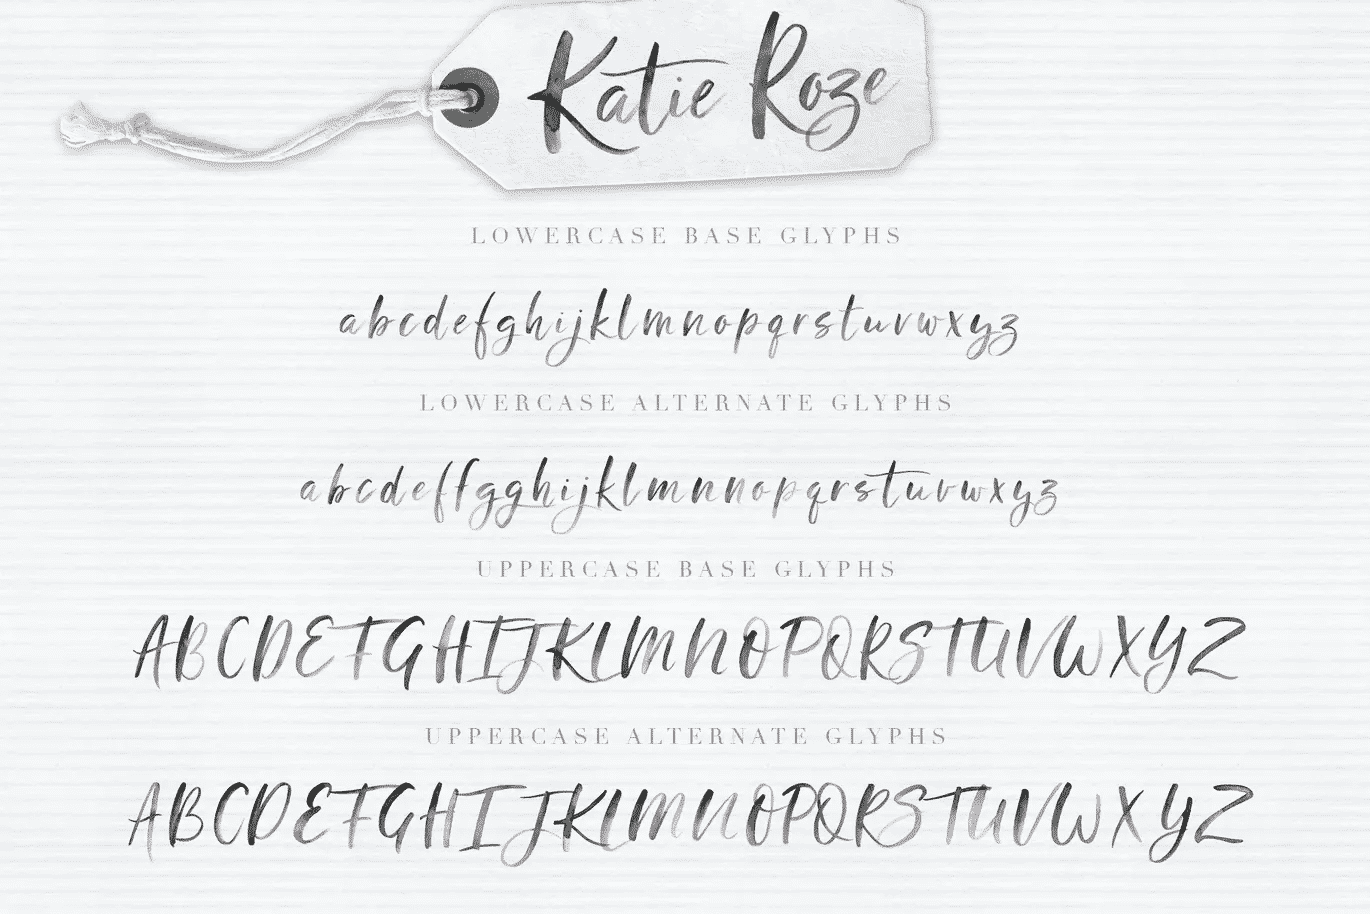 Katie Roze
LOWERCASE BASE GLYPHS
abcdefghijklmnopqrstuvwxyz
LOWERCASE ALTERNATE GLYPHS
abcdeffgghijklmnnopqrstuvwxyz
UPPERCASE BASE GLYPHS
ABCDEFGHIJKLMNOPQRSTUVWXYZ
UPPERCASE ALTERNATE GLYPHS
ABCDEFGHIJKLMNOPQRSTUVWXYZ